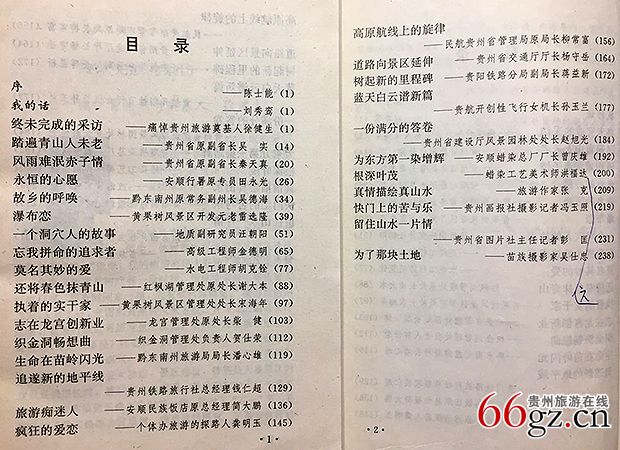 目 录
序——陈士能(1)
我的话——刘秀鸾(1)
终未完成的采访——痛悼贵州旅游奠基人徐健生(1)
踏遍青山人未老——贵州省原副省长吴 实(14)
风雨难泯赤子情——贵州省原副省长秦天真(20)
永恒的心愿——安顺行署原专员田永光(26)
故乡的呼唤——黔东南州原常务副州长吴德海(34)
瀑布恋——黄果树风景区开发元老雷迅隆(39)
一个洞穴人的故事——地质副研究员汪朝阳(51)
忘我拼命的追求者——高级工程师金德明(65)
莫名其妙的爱——水电工程师胡克铨(77)
还将春色抹青山——红枫湖管理处原处长谢大本(88)
执着的实干家——黄果树风景区管理处处长宋海年(97)
志在龙宫创新业——龙宫管理处原处长柴 健(103)
织金洞畅想曲——织金洞管理处负责人贺仕荣(112)
生命在苗岭闪光——黔东南州旅游局局长潘心雄(119)
追逐新的地平线
——贵州铁路旅行社总经理钱仁超(129)
旅游痴迷人——安顺民族饭店原总经理简大鹏(136)
疯狂的爱恋——个体办旅游的探路人龚明玉(145)
·1·
高原航线上的旋律
——民航贵州省管理局原局长柳常富(156)
道路向景区延伸——贵州省交通厅厅长杨守岳(164)
树起新的里程碑——贵阳铁路分局副局长蒋益新(172)
蓝天白云谱新篇
——贵航开创性飞行女机长孙玉兰(177)
一份满分的答卷
——贵州省建设厅风景园林处处长赵旭光(184)
为东方第一染增辉——安顺蜡染总厂厂长曾庆雄(192)
根深叶茂——蜡染工艺美术师洪福达(200)
真情描绘真山水——旅游作家张 克(209)
快门上的苦与乐——贵州画报社摄影记者冯玉照(219)
留住山水一片情
——贵州省图片社主任记者彭 匡(231)
为了那块土地——苗族摄影家吴仕忠(238)
·2·
贵州旅游在线
66gz.cn